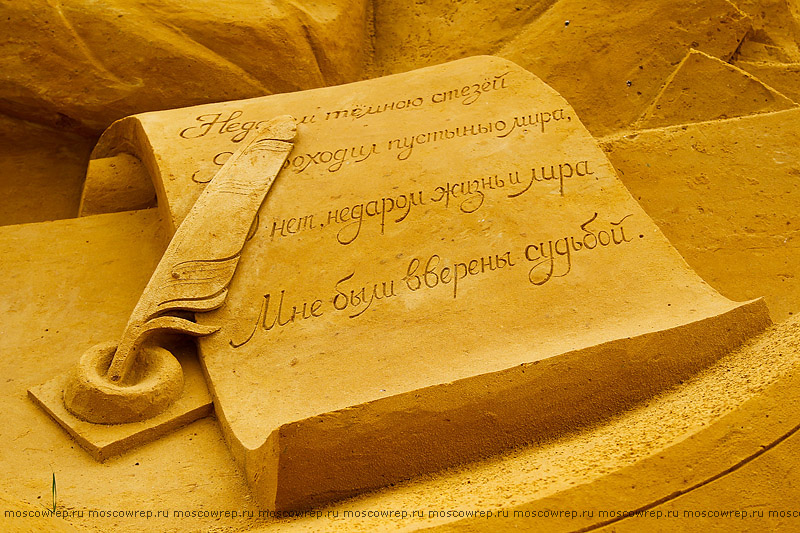 Недаром тёмною стезёй
Я проходил пустынью мира,
О нет, недаром жизнь и лира
Мне были вверены судьбой.
moscowrep.ru moscowrep.ru moscowrep.ru moscowrep.ru moscowrep.ru moscowrep.ru moscowrep.ru moscowrep.ru moscowrep.ru